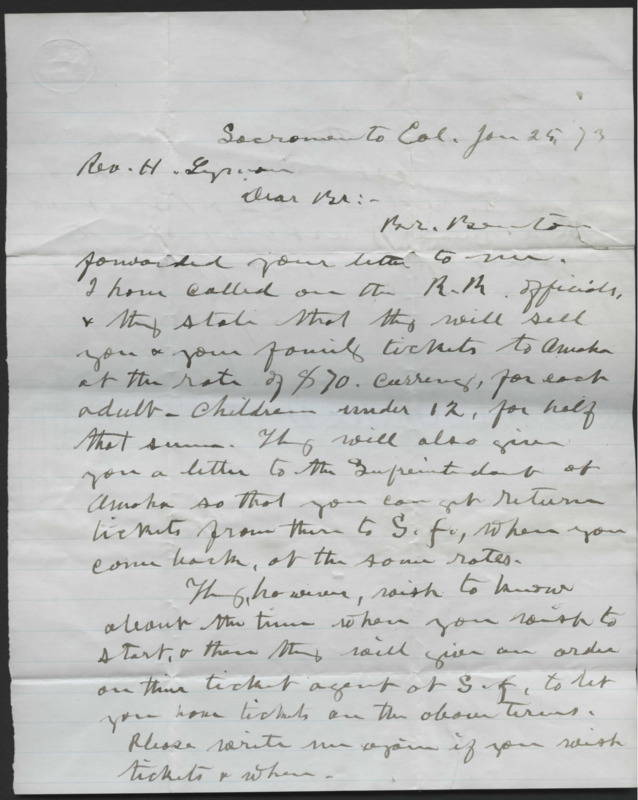 Sacramento Cal. Jan 25, 73
Rev. H. Lyman
Dear Br:-
Br. Benton
forwarded your letter to me.
I have called on the R.R. officials,
& they state that they will sell
you & your family tickets to Amaha
at the rate of $70. currency, for each
adult - children under 12, for half
that summ. They will also given
you a letter to the Superintendant at
Amaha so that you can get return
tickets from there to S.f., when you
come back, at the same rates.
They, however, wish to know
about the time when you wish to
start, & then they will given an order
on their ticket agent at S.f, to let
you have tickets on the above terms.
Please write me again if you wish
tickets & when -